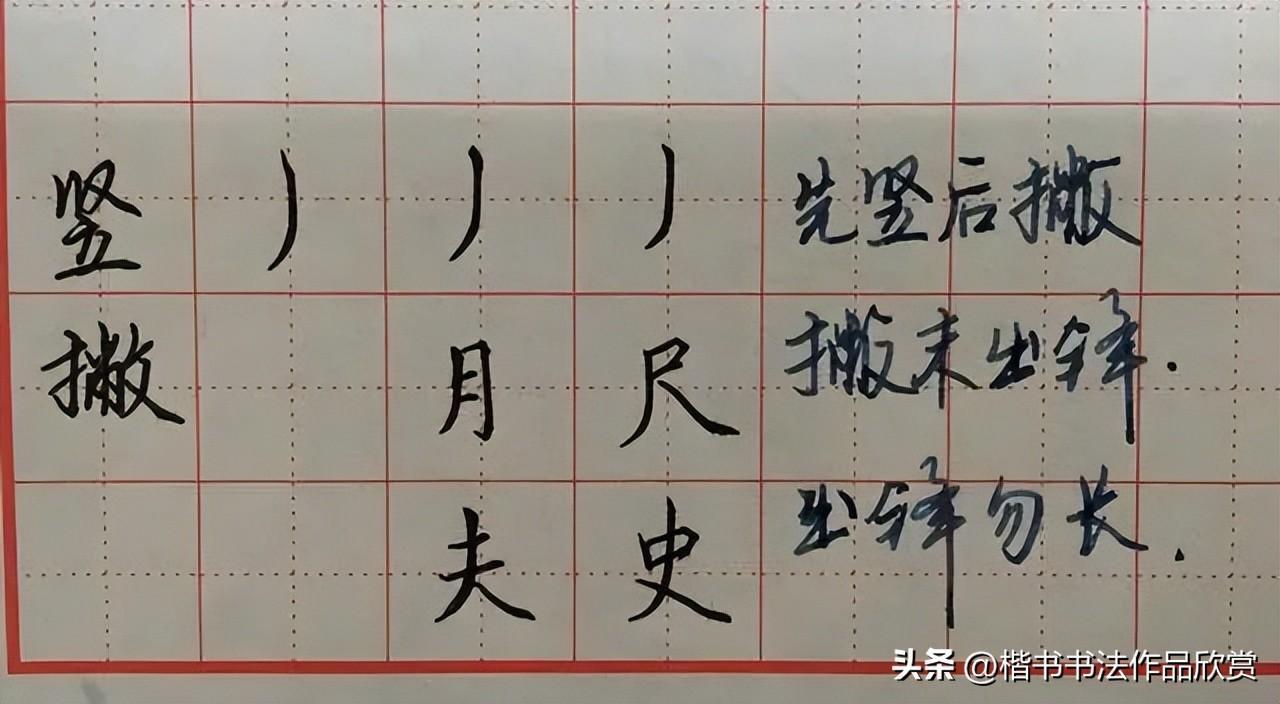 竖 丿 丿 丿 先竖后撇
撇 月 尺 撇末出锋.
夫 史 出锋勿长.
头条 @楷书书法作品欣赏